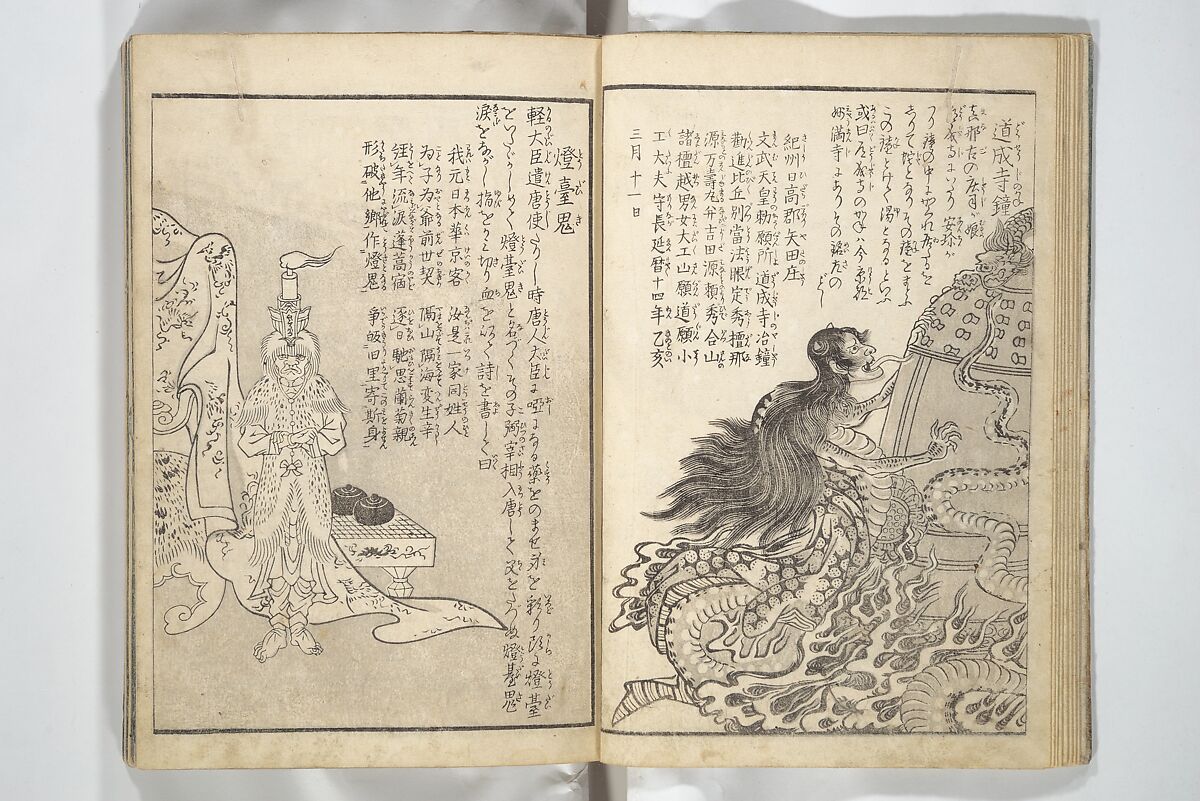 道成寺鐘
真那古の庄司が娘
道成寺にいたり 安珍が
つり鐘の中にかくれ居たるを
しりて蛇となりその鐘をまとふ
この鐘とけて湯となるといふ
或曰道成寺のかねは今京都
妙満寺にありその銘左の
ごとし
紀州日高郡矢田庄
文武天皇勅願所道成寺冶鐘
勧進比丘別當法眼定秀檀那
源万壽丸并吉田源頼秀合山
諸檀越男女大工山願道願小
工大夫守長延暦十四年乙亥
三月十一日
燈臺鬼
軽大臣遣唐使たりし時唐人大臣に唖になる薬をのませ身を彩り頭に燈臺
をいたゞかしめて燈臺鬼と名づくその子弼宰相入唐して父をたづぬ燈臺鬼
涙をながし指をかみ切り血を以て詩を書して曰
我元日本華京客 汝是一家同姓人
為子為爺前世契 隔山隔海変生辛
経年流涙蓬蒿宿 逐日馳思蘭菊親
形破他郷作燈鬼 争皈旧里寄斯身